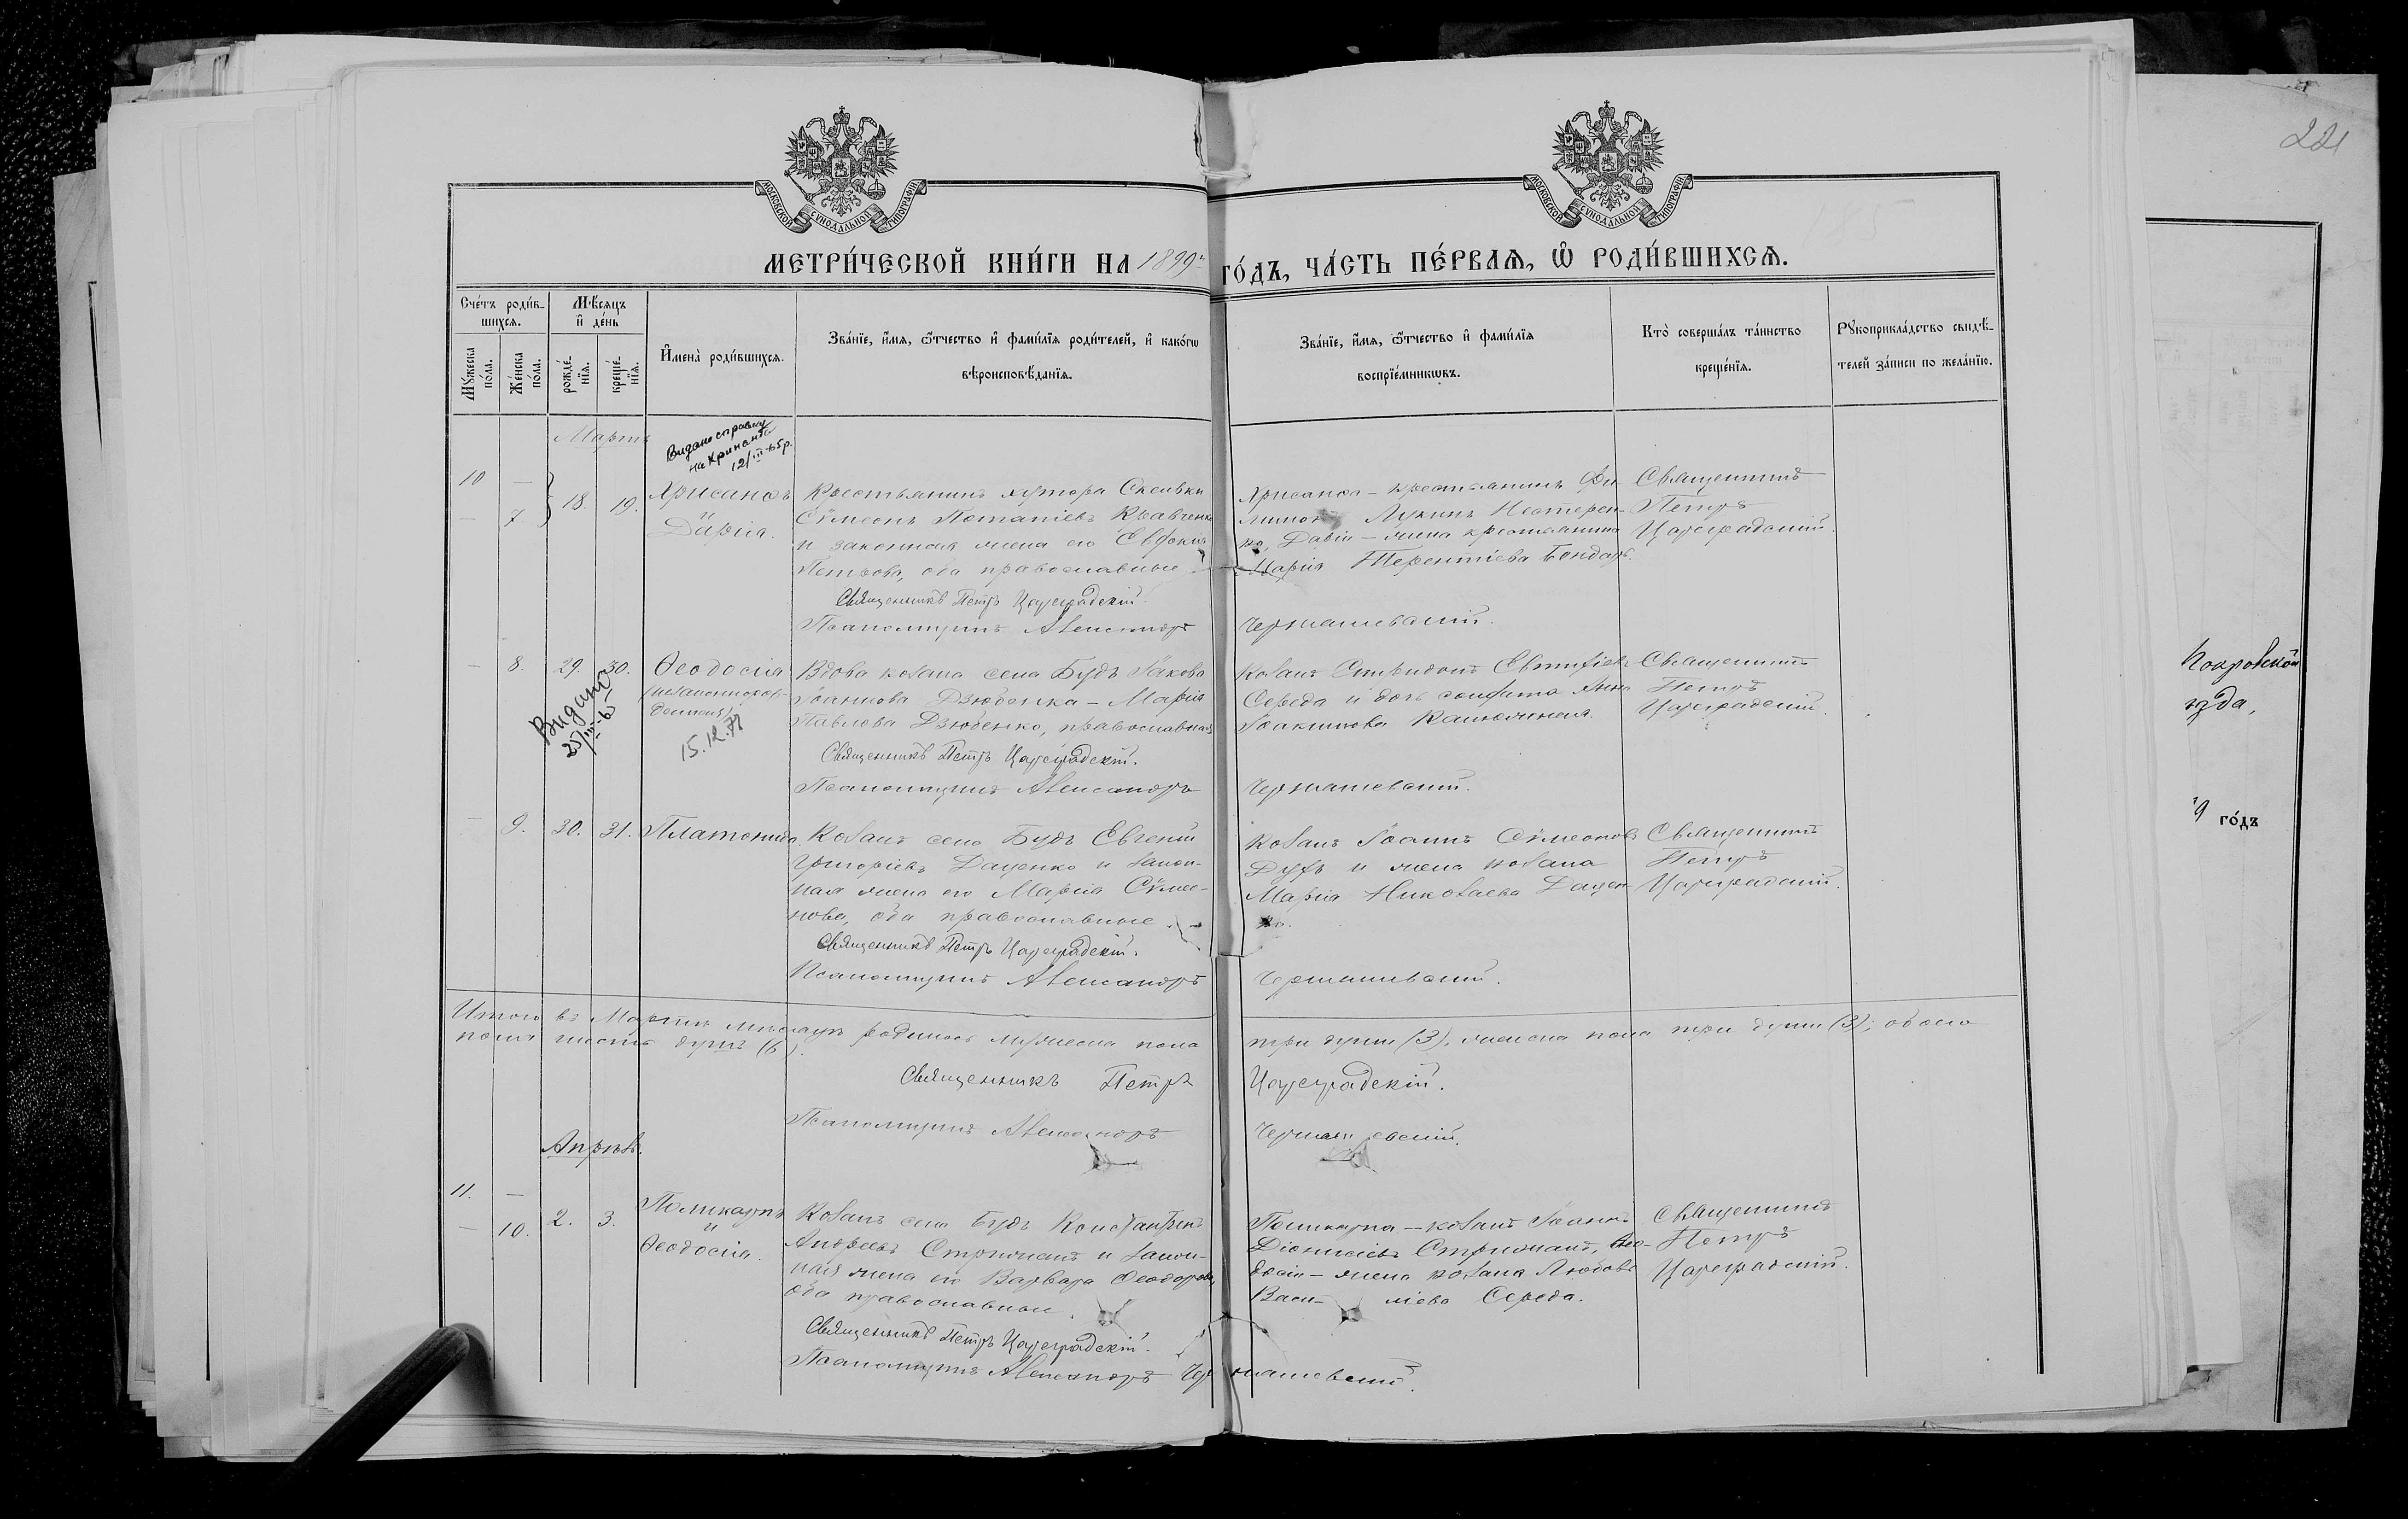 221
МОСКОВСКОЙ СУНОДАЛЬНОЙ ТИПОГРАФИИ
МОСКОВСКОЙ СУНОДАЛЬНОЙ ТИПОГРАФИИ
МЕТРИ́ЧЕСКОЙ КНИ́ГИ НА 1899 ГО́ДЪ, ЧА́СТЬ ПЕ́РВАѦ, Ѡ РОДИ́ВШИХСѦ.
Сче́тъ роди́в-
шихсѧ.
Мꙋ́жеска по́ла.
Же́нска по́ла.
Мѣ́сѧцъ
и҆ де́нь
рожде́-
нїѧ.
креще́-
нїѧ.
И҆мена̀ роди́вшихсѧ.
Зва́нїе, и҆́мѧ, ѻ҆́тчество и҆ фами́лїѧ роди́телей, и҆ како́гѡ
вѣроисповѣ́данїѧ.
Зва́нїе, и҆́мѧ, ѻ҆́тчество и҆ фами́лїѧ
воспрїе́мникѡвъ.
Кто̀ соверша́лъ та́инство
креще́нїѧ.
Рꙋкоприкла́дство свидѣ́-
телей за́писи по жела́нїю.
Мартъ
Видано справку
на Хрисанфа
12/III-65р.
10 — 18. 19. Хрисанѳъ
— 7. и
Дарія.
Крестьянинъ хутора Скепвки
Сѵмеонъ Потапіевъ Кравченко
и законная жена его Евфокія
Петрова, оба православные
Священникъ Петръ Цареградскій
Псаломщикъ Александръ Чернышевскій.
Хрисанѳа – крестьянинъ Фи-
лимонъ Лукинъ Нестерен-
ко, Даріи – жена крестьянина
Марія Терентіева Бондарь.
Священникъ
Петръ
Цареградскій.
— 8. 29. 30. Ѳеодосія
(незаконнорож-
денная)
Видано
25/III-65
15.12.77
Вдова козака села Будъ Іакова
Іоаннова Дзюбенка – Марія
Павлова Дзюбенко, православная
Священникъ Петръ Цареградскій.
Псаломщикъ Александръ Чернышевскій.
Козакъ Спиридонъ Евтихіевъ
Середа и дочь солдата Анна
Іоакимова Калюжная.
Священникъ
Петръ
Цареградскій.
— 9. 30. 31. Платонида.
Козакъ села Будъ Евгеній
Григоріевъ Даценко и закон-
ная жена его Марія Сѵмео-
нова, оба православные.
Священникъ Петръ Цареградскій.
Псаломщикъ Александръ Чернышевскій.
Козакъ Іоаннъ Сѵмеоновъ
Дубъ и жена козака
Марія Николаева Дацен-
ко.
Священникъ
Петръ
Цареградскій.
Итого въ Мартѣ мѣсяцѣ родилось мужеска пола три души (3), женска пола три души (3), обоего
пола шесть душъ (6).
Священникъ Петръ Цареградскій.
Псаломщикъ Александръ Чернышевскій.
Апрѣль.
11. — 2. 3. Поликарпъ
— 10. и
Ѳеодосія.
Козакъ села Будъ Константинъ
Андреевъ Стрижакъ и закон-
ная жена его Варвара Ѳеодорова,
оба православные.
Священникъ Петръ Цареградскій.
Псаломщикъ Александръ Чернышевскій.
Поликарпа – козакъ Іоаннъ
Діонисіевъ Стрижакъ, Ѳео-
досіи – жена козака Любовь
Васи- ліева Середа.
Священникъ
Петръ
Цареградскій.
Покровской
ѣзда,
9 го́дъ